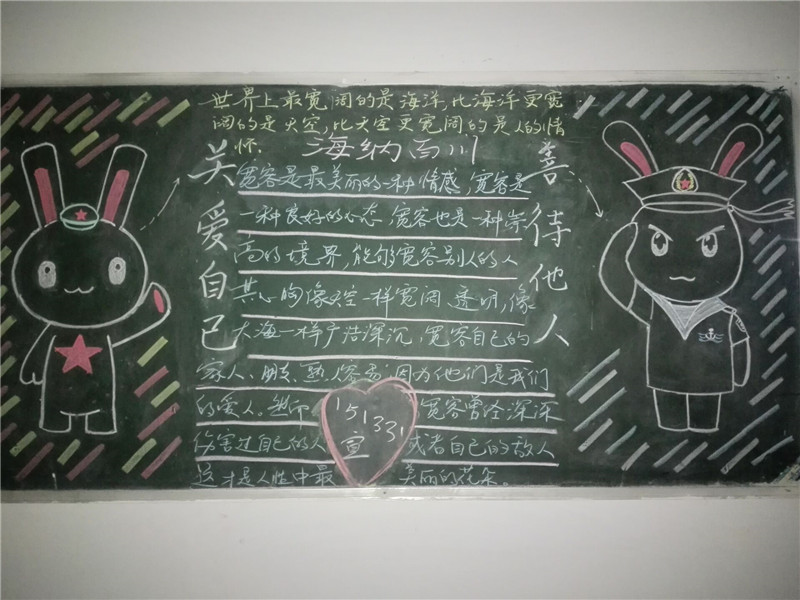 世界上最宽阔的是海洋,比海洋更宽
阔的是天空,比天空更宽阔的是人的情
怀.
海纳百川
关爱自己
善待他人
宽容是最美丽的一种情感,宽容是
一种良好的心态 宽容也是一种崇
高的境界,能够宽容别人的人
其心胸像天空一样宽阔 透明,像
大海一样广浩深沉,宽容自己的
家人、朋友、熟人容易,因为他们是我们
的爱人。然而 宽容曾经深深
伤害过自己的人 或者自己的敌人
这才是人性中最 美丽的花朵。
151331
宣